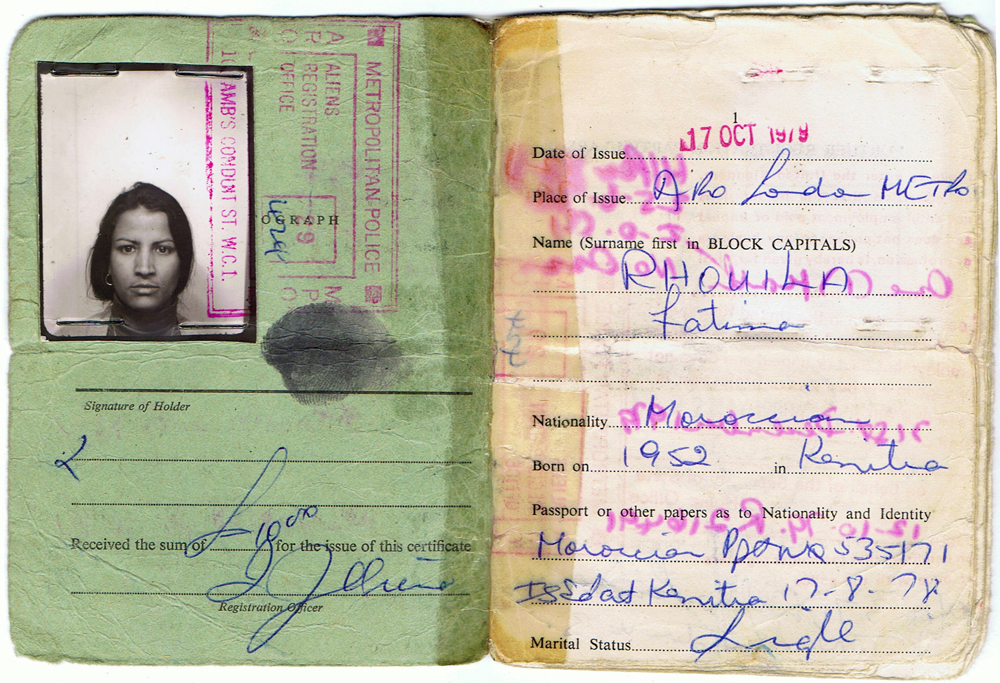 METROPOLITAN POLICE
ALIENS
REGISTRATION
OFFICE
LAMB'S CONDUIT ST. W.C.1.
OGRAPH
Signature of Holder
Received the sum of £10 for the issue of this certificate
Registration Officer
1
17 OCT 1979
Date of Issue
Place of Issue ARO London METRO
Name (Surname first in BLOCK CAPITALS)
RHOUILA
Fatima
Nationality Moroccian
Born on 1952 in Kenitra
Passport or other papers as to Nationality and Identity
Moroccian Ppt No 535171
Issd at Kenitra 17-8-78
Marital Status Single